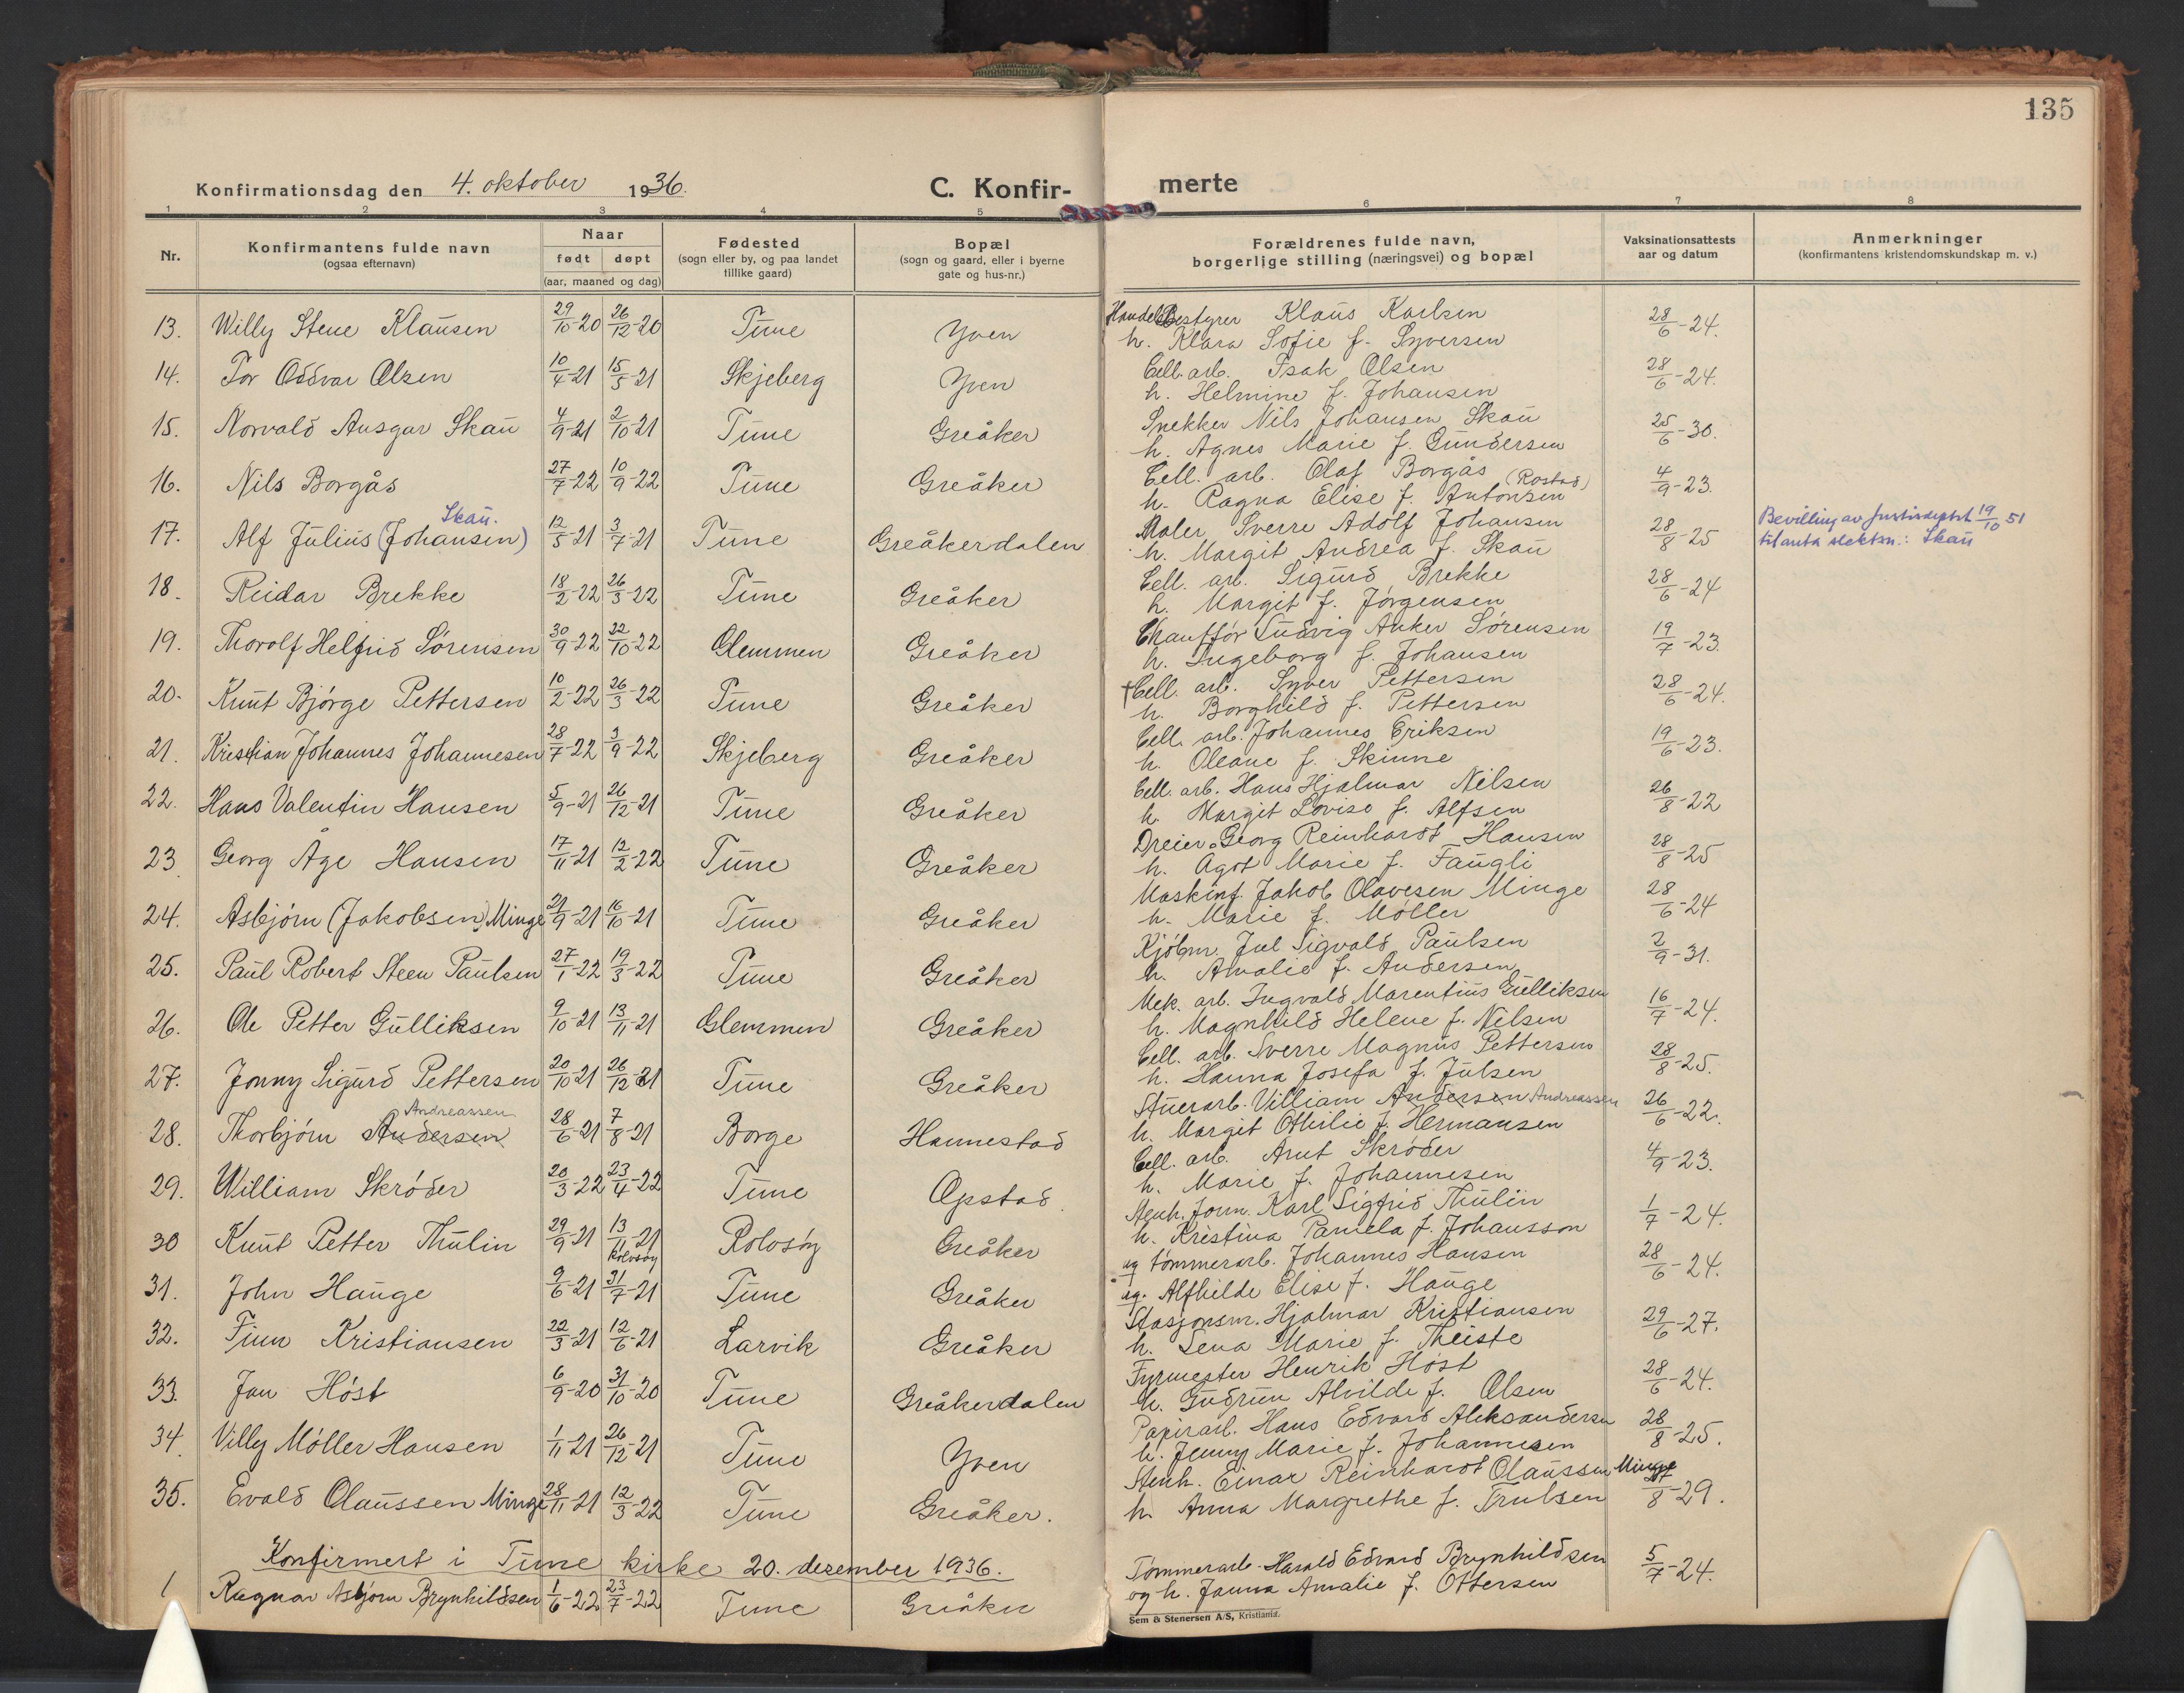 135
Konfirmationsdag den 4. oktober 1936. C. Konfir- merte
1 2 3 4 5 6 7 8
Nr. Konfirmantens fulde navn (ogsaa efternavn) Naar født døpt (aar, maaned og dag) Fødested (sogn eller by, og paa landet tillike gaard) Bopæl (sogn og gaard, eller i byerne gate og hus-nr.) Forældrenes fulde navn, borgerlige stilling (næringsvei) og bopæl Vaksinationsattests aar og datum Anmerkninger (konfirmantens kristendomskundskap m. v.)
13. Willy Stene Klausen 29/10-20 26/12-20 Tune Yven Handelsbestyrer Klaus Karlsen 28/6-24.
h. Klara Sofie f. Syversen
14. Tor Oddvar Olsen 10/4-21 15/5-21 Skjeberg Yven Cell. arb. Isak Olsen 28/6-24.
h. Helmine f. Johansen
15. Norvald Ansgar Skau 4/9-21 2/10-21 Tune Greåker Snekker Nils Johansen Skau 25/6-30.
h. Agnes Marie f. Gundersen
16. Nils Borgås 27/7-22 10/9-22 Tune Greåker Cell. arb. Olaf Borgås (Rostad) 4/9-23.
h. Ragna Elise f. Antonsen
Skau.
17. Alf Julius (Johansen) 12/5-21 3/7-21 Tune Greåkerdalen Maler Sverre Adolf Johansen 28/8-25 Bevilling av Justisdeptet 19/10 51
h. Margit Andrea f. Skau til anta slektsn.: Skau
18. Reidar Brekke 18/2-22 26/3-22 Tune Greåker Cell. arb. Sigurd Brekke 28/6-24
h. Margit f. Jørgensen
19. Thorolf Helfrid Sørensen 30/9-22 22/10-22 Glemmen Greåker Chauffør Ludvig Anker Sørensen 19/7-23.
h. Ingeborg f. Johansen
20. Knut Bjørge Pettersen 10/2-22 26/3-22 Tune Greåker †Cell. arb. Syver Pettersen 28/6-24.
h. Borghild f. Pettersen
21. Kristian Johannes Johannesen 28/7-22 3/9-22 Skjeberg Greåker Cell. arb. Johannes Eriksen 19/6-23.
h. Oleane f. Skinne
22. Hans Valentin Hansen 5/9-21 26/12-21 Tune Greåker Cell. arb. Hans Hjalmar Nilsen 26/8-22
h. Margit Lovise f. Alfsen
23. Georg Åge Hansen 17/11-21 12/2-22 Tune Greåker Dreier Georg Reinhardt Hansen 28/8-25
h. Agot Marie f. Faugli
24. Asbjørn (Jakobsen) Minge 21/9-21 16/10-21 Tune Greåker Maskinf. Jakob Olavesen Minge 28/6-24
h. Marie f. Møller
25. Paul Robert Steen Paulsen 27/1-22 19/3-22 Tune Greåker Kjøbm. Jul Sigvald Paulsen 2/9-31.
h. Amalie f. Andersen
26. Ole Petter Gulliksen 9/10-21 13/11-21 Glemmen Greåker Mek. arb. Ingvald Marentius Gulliksen 16/7-24.
h. Magnhild Helene f. Nilsen
27. Jonny Sigurd Pettersen 20/10-21 26/12-21 Tune Greåker Cell. arb. Sverre Magnus Pettersen 28/8-25.
h. Hanna Josefa f. Julsen
Andreassen
28. Thorbjørn Andersen 28/6-21 7/8-21 Borge Hannestad Stuerarb. Villiam Andersen Andreassen 26/6-22.
h. Margit Othilie f. Hermansen
29. William Skrøder 20/3-22 23/4-22 Tune Opstad. Cell. arb. Arnt Skrøder 4/9-23.
h. Marie f. Johannesen
30 Knut Petter Thulin 29/9-21 13/11-21 Rolvsøy Rolvsøy Greåker Stenh. form. Karl Sigfrid Thulin 1/7-24.
h. Kristina Pamela f. Johansson
31. John Hauge 9/6-21 31/7-21 Tune Greåker ug tømmerarb. Johannes Hansen 28/6-24.
ug. Alfhilde Elise f. Hauge
32. Finn Kristiansen 22/3-21 12/6-21 Larvik Greåker Stasjonsm. Hjalmar Kristiansen 29/6-27.
h. Lena Marie f. Theiste
33. Jan Høst 6/9-20 31/10-20 Tune Greåkerdalen Fyrmester Henrik Høst 28/6-24.
h. Gudrun Alvilde f. Olsen
34. Villy Møller Hansen 1/11-21 26/12-21 Tune Yven Papirarb. Hans Edvard Aleksandersen 28/8-25.
h. Jenny Marie f. Johannesen
35. Evald Olaussen Minge 28/11-21 12/3-22 Tune Greåker. Stenh. Einar Reinhardt Olaussen Minge /8-29.
h. Anna Margrethe f. Trulsen
Konfirmert i Tune kirke 20. desember 1936.
1 Ragnar Asbjørn Brynhildsen 1/6-22 23/7-22 Tune Greåker Tømmerarb. Harald Edvard Brynhildsen 5/7-24.
og h. Janna Amalie f. Ottersen
Sem & Stenersen A/S, Kristiania.